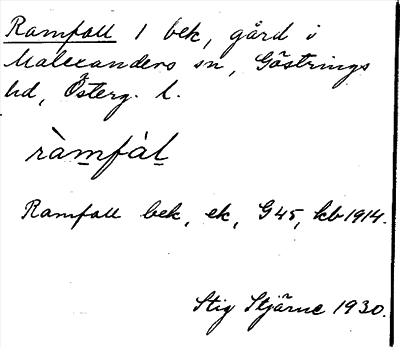 Ramfall 1 bek, gård i
Malexanders sn, Göstrings
hd, Österg. l.
ràm̲fàl̲
Ramfall bek, ek, G45, kb 1914.
Stig Stjärne 1930.